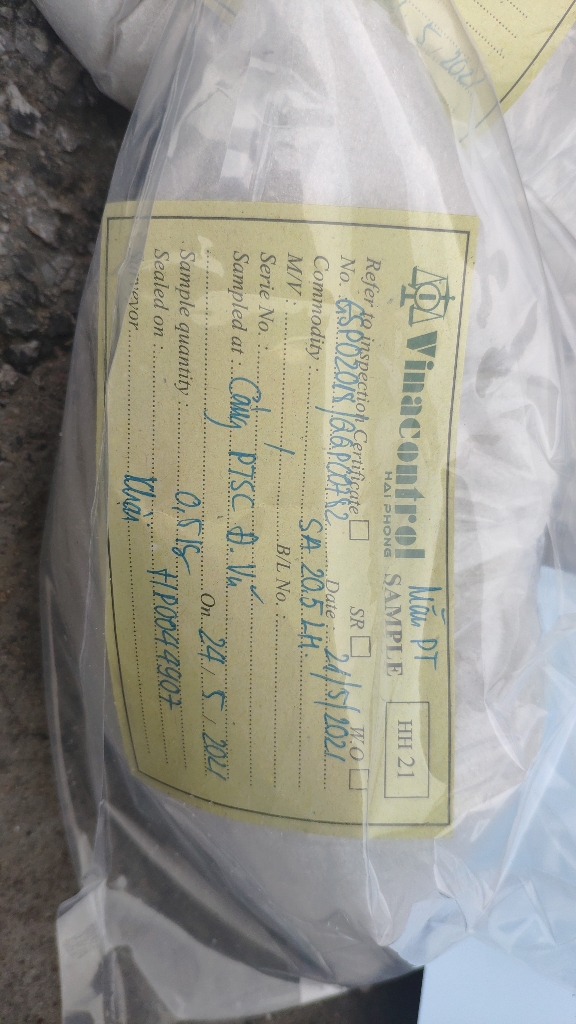 Vinacontrol
HAI PHONG
Mẫu PT
SAMPLE
HH 21
Refer to inspection Certificate □ SR □ W.O □
No. Date : 24/5/2021
Commodity : SA 20.5 LH
M/V : B/L No. :
Serie No. : /
Sampled at : Cảng PTSC Đ. Vũ
On 24 / 5 / 2021
Sample quantity : 0,5
Sealed on : HP0044907
veyor
5 / 202